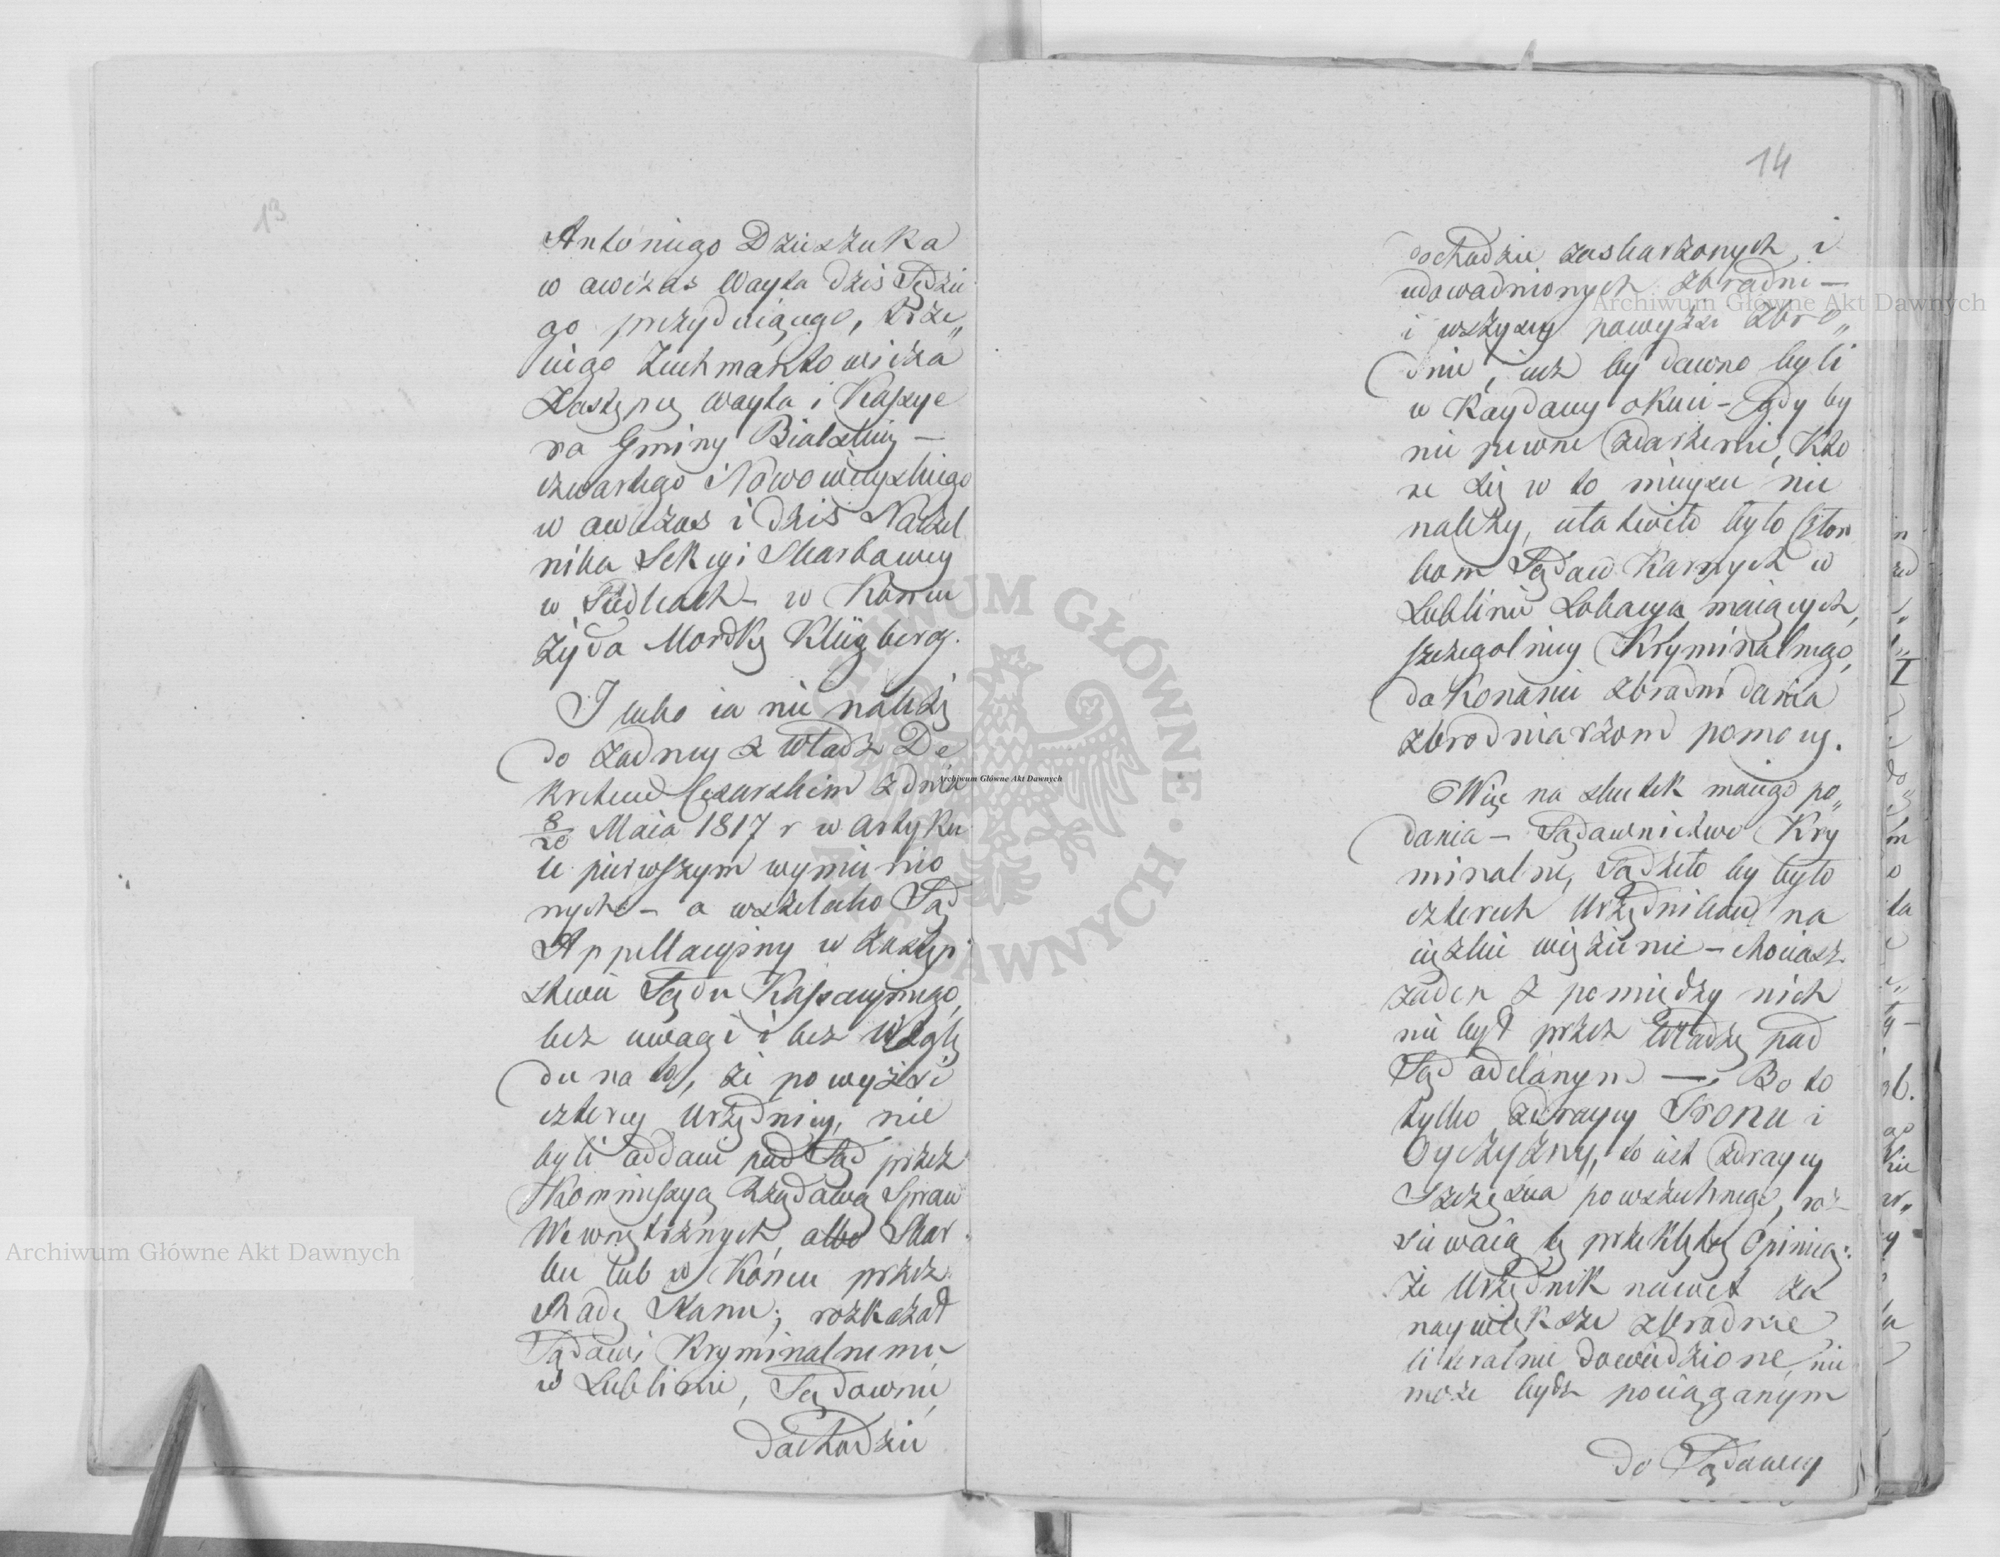 13
Antoniego Dziuszuka
w owczas Wayta dziś Sędzie
go prezyduiącego, trze„
ciego Zuchmantowicza
Zastępcę Wayta i Kassye
ra Gminy Bialskiey —
czwartego Nowowieyskiego
w owczas i dziś Naczel
nika Sekcyi Skarbowey
w Siedlcach – w Koncu
Żyda Mordkę Klügberg.
I lubo ia nie należę
do żadney z Władz De
kretem Cesarskim z dnia
8/20 Maia 1817 r w Artyku
le pierwszym wymienio
nych – a wszelako Sąd
Appellacyiny w Zastęp
stwie Sądu Kassacyinego,
bez uwagi i bez Wzglę
du na to, że powyżsi
czterey Urzędnicy, nie
byli oddani pod Sąd przez
Kommissyą Rządową Spraw
Wewnętrznych albo Skar
bu lub w Końcu przez
Radę Stanu; rozkazał
Sądowi Kryminalnemu
w Lublinie, Sądownie,
dochodzić
14
dochodzić zaskarżonych i
udowodnionych zbrodni —
i wszyscy powyżsi zbro„
dnie, iuż by dawno byli
w Kaydany okuci – gdy by
nie pewne zdarzenie, Któ
re się w to mieysce nie
należy, ułatwiło było Człon
kom Sądów Karnych w
Lublinie Lokacyą maiących,
szczegolniey Kryminalnego,
dokonanie zbrodni dania
zbrodniarzom pomocy.
Więc na skutek moiego po„
dania – Sądownictwo Kry
minalne, Sądziło by było
czterech Urzędników na
ciężkie więzienie – chociaż
żaden z pomiędzy nich
nie był przez Władzę pod
Sąd oddanym —. Bo to
tylko zdraycy Tronu i
Oyczyzny, to iest zdraycy
Szczęścia powszechnego, roz
siewaią tę przeklętą Opinią:
że Urzędnik nawet za
naywiększe zbrodnie
literalnie dowiedzione, nie
może bydź pociąganym
do Sądowey
Archiwum Główne Akt Dawnych
Archiwum Główne Akt Dawnych
Archiwum Główne Akt Dawnych
ARCHIWUM GŁÓWNE · AKT DAWNYCH ·